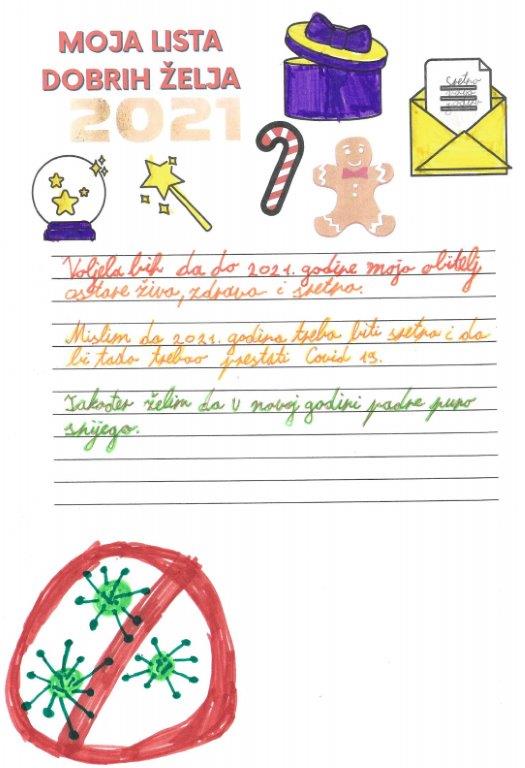 MOJA LISTA
DOBRIH ŽELJA
2021
sretno
novo
godino
Voljela bih da do 2021. godine moja obitelj
ostane živa, zdrava i sretna.
Mislim da 2021. godina treba biti sretna i da
bi tada trebao prestati Covid 19.
Također želim da u novoj godini padne puno
snijega.